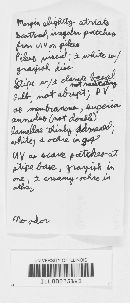 Margin slightly striate
scattered, irregular patches
from UV on pileus
Pileus viscid, ± white w/
grayish disc.
Stipe w/ ± clavate basal
bulb, not abrupt, PV
not receding
as membranous, superior
annulus (not double)
Lamellae thinly
white, ± ochre in age
UV as scarce patches at
stipe base, grayish in
one, ± creamy-ochre in
other,
No odor
UNIVERSITY OF ILLINOIS